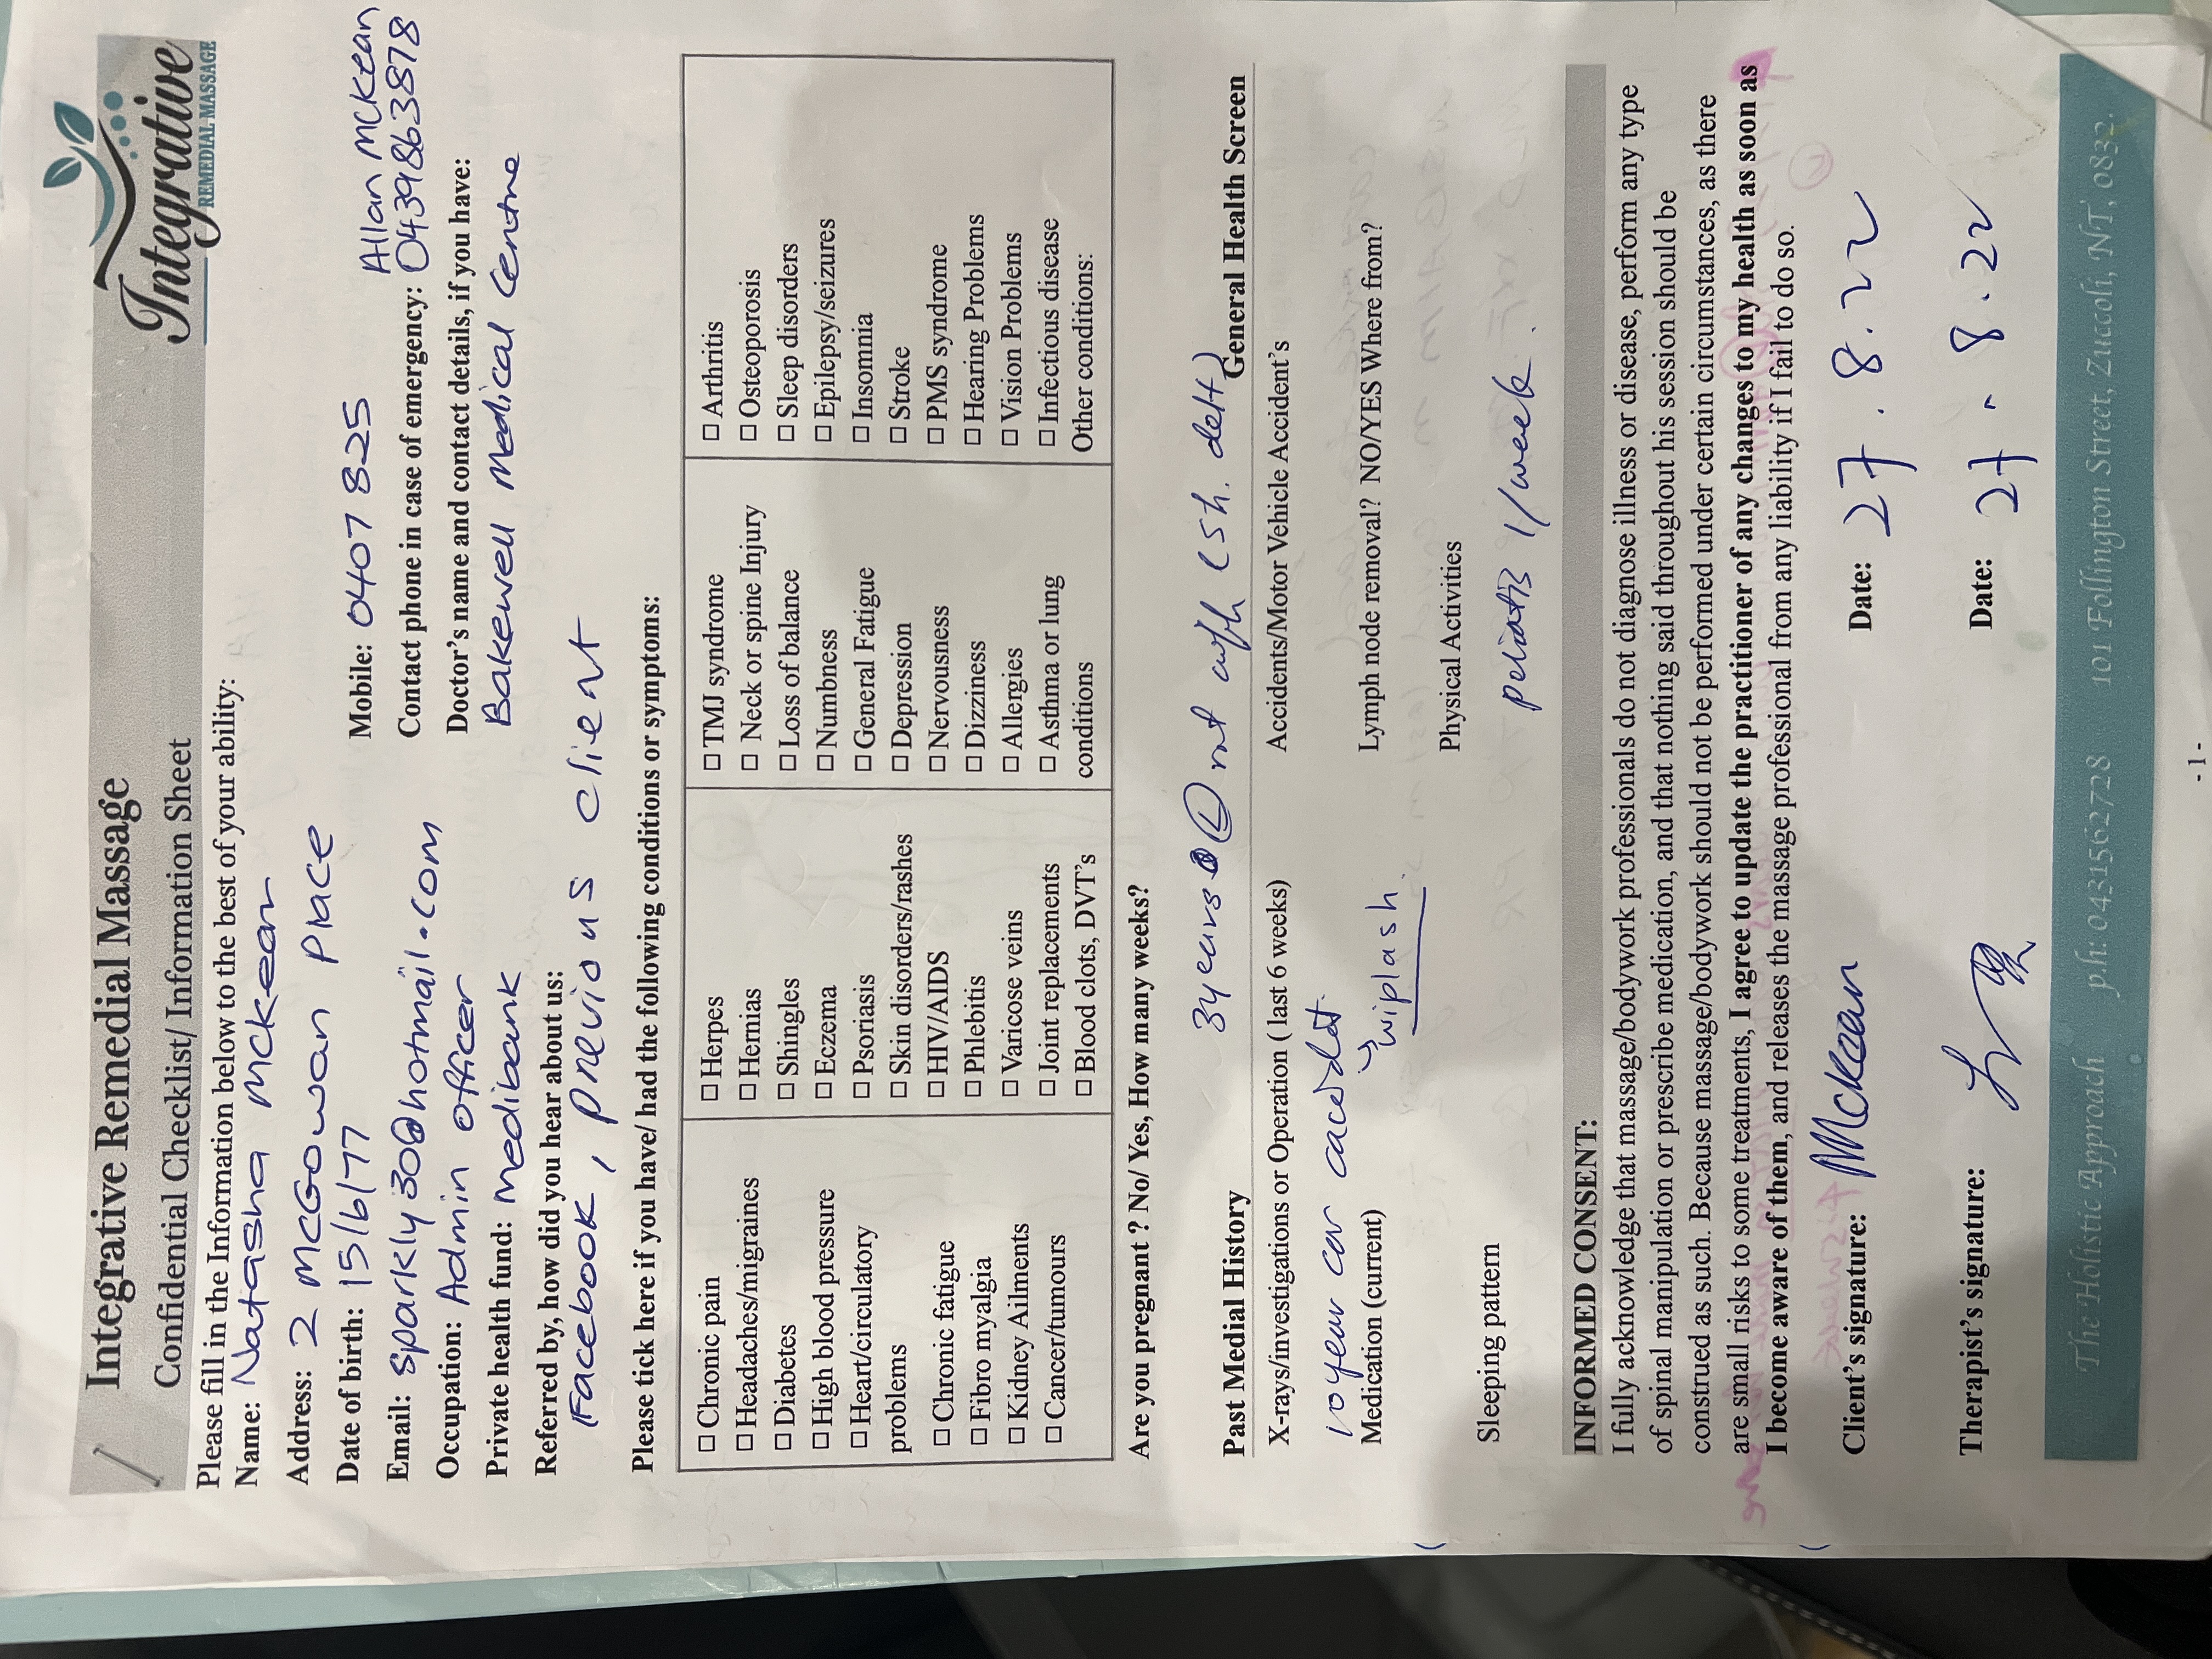 Integrative Remedial Massage
Confidential Checklist/ Information Sheet
Integrative
REMEDIAL MASSAGE
Please fill in the Information below to the best of your ability:
Name: Natasha McKean
Address: 2 McGowan Place
Date of birth: 15/6/77
Mobile: 0407 825
Email: sparkly30@hotmail.com
Allan McKean
Contact phone in case of emergency: 0439863878
Occupation: Admin officer
Doctor's name and contact details, if you have:
Private health fund: Medibank
Bakewell Medical Centre
Referred by, how did you hear about us:
Facebook, previous client
Please tick here if you have/ had the following conditions or symptoms:
☐ Chronic pain
☐ Headaches/migraines
☐ Diabetes
☐ High blood pressure
☐ Heart/circulatory
problems
☐ Chronic fatigue
☐ Fibro myalgia
☐ Kidney Ailments
☐ Cancer/tumours
☐ Herpes
☐ Hernias
☐ Shingles
☐ Eczema
☐ Psoriasis
☐ Skin disorders/rashes
☐ HIV/AIDS
☐ Phlebitis
☐ Varicose veins
☐ Joint replacements
☐ Blood clots, DVT's
☐ TMJ syndrome
☐ Neck or spine Injury
☐ Loss of balance
☐ Numbness
☐ General Fatigue
☐ Depression
☐ Nervousness
☐ Dizziness
☐ Allergies
☐ Asthma or lung
conditions
☐ Arthritis
☐ Osteoporosis
☐ Sleep disorders
☐ Epilepsy/seizures
☐ Insomnia
☐ Stroke
☐ PMS syndrome
☐ Hearing Problems
☐ Vision Problems
☐ Infectious disease
Other conditions:
Are you pregnant ? No/ Yes, How many weeks?
3years Ⓛ rot cuff (sh. delt)
Past Medial History
General Health Screen
X-rays/investigations or Operation ( last 6 weeks)
Accidents/Motor Vehicle Accident's
10year car
wiplash.
Medication (current)
Lymph node removal? NO/YES Where from?
Physical Activities
Sleeping pattern
1/week.
INFORMED CONSENT:
I fully acknowledge that massage/bodywork professionals do not diagnose illness or disease, perform any type
of spinal manipulation or prescribe medication, and that nothing said throughout his session should be
construed as such. Because massage/bodywork should not be performed under certain circumstances, as there
are small risks to some treatments, I agree to update the practitioner of any changes to my health as soon as
I become aware of them, and releases the massage professional from any liability if I fail to do so.
Client's signature: McKean Date: 27.8.22
Therapist's signature: Date: 27.8.22
The Holistic Approach p.h: 0431562728 101 Follington Street, Zuccoli, NT, 0832.
- 1 -